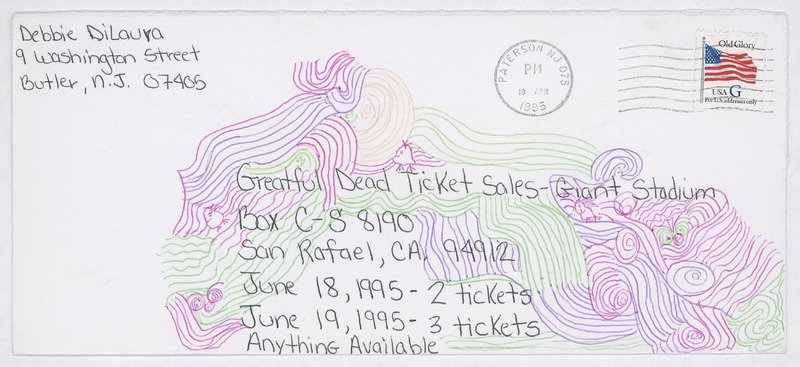 Debbie DiLaura
9 Washington Street
Butler, N.J. 07405
PATERSON NJ 075
PM
18 APR
1995
Old Glory
USA G
For U.S. addresses only
Greatful Dead Ticket Sales-Giant Stadium
Box C-S 8190
San Rafael, CA. 94912
June 18, 1995 - 2 tickets
June 19, 1995 - 3 tickets
Anything Available